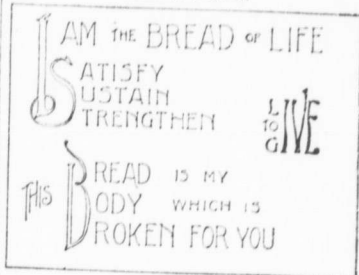 I AM THE BREAD OF LIFE
SATISFY
SUSTAIN
STRENGTHEN
LIVE
TO
GIVE
THIS BREAD IS MY
BODY WHICH IS
BROKEN FOR YOU